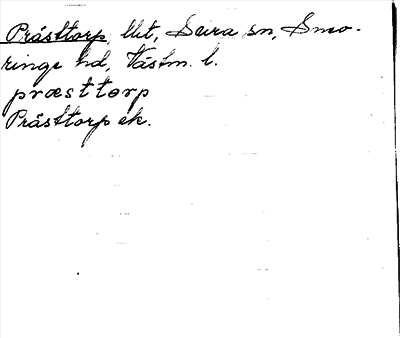 Prästtorp, llit, Sevra sn, Snev-
ringe hd, Västm. l.
præsttorp
Prästtorp ek.